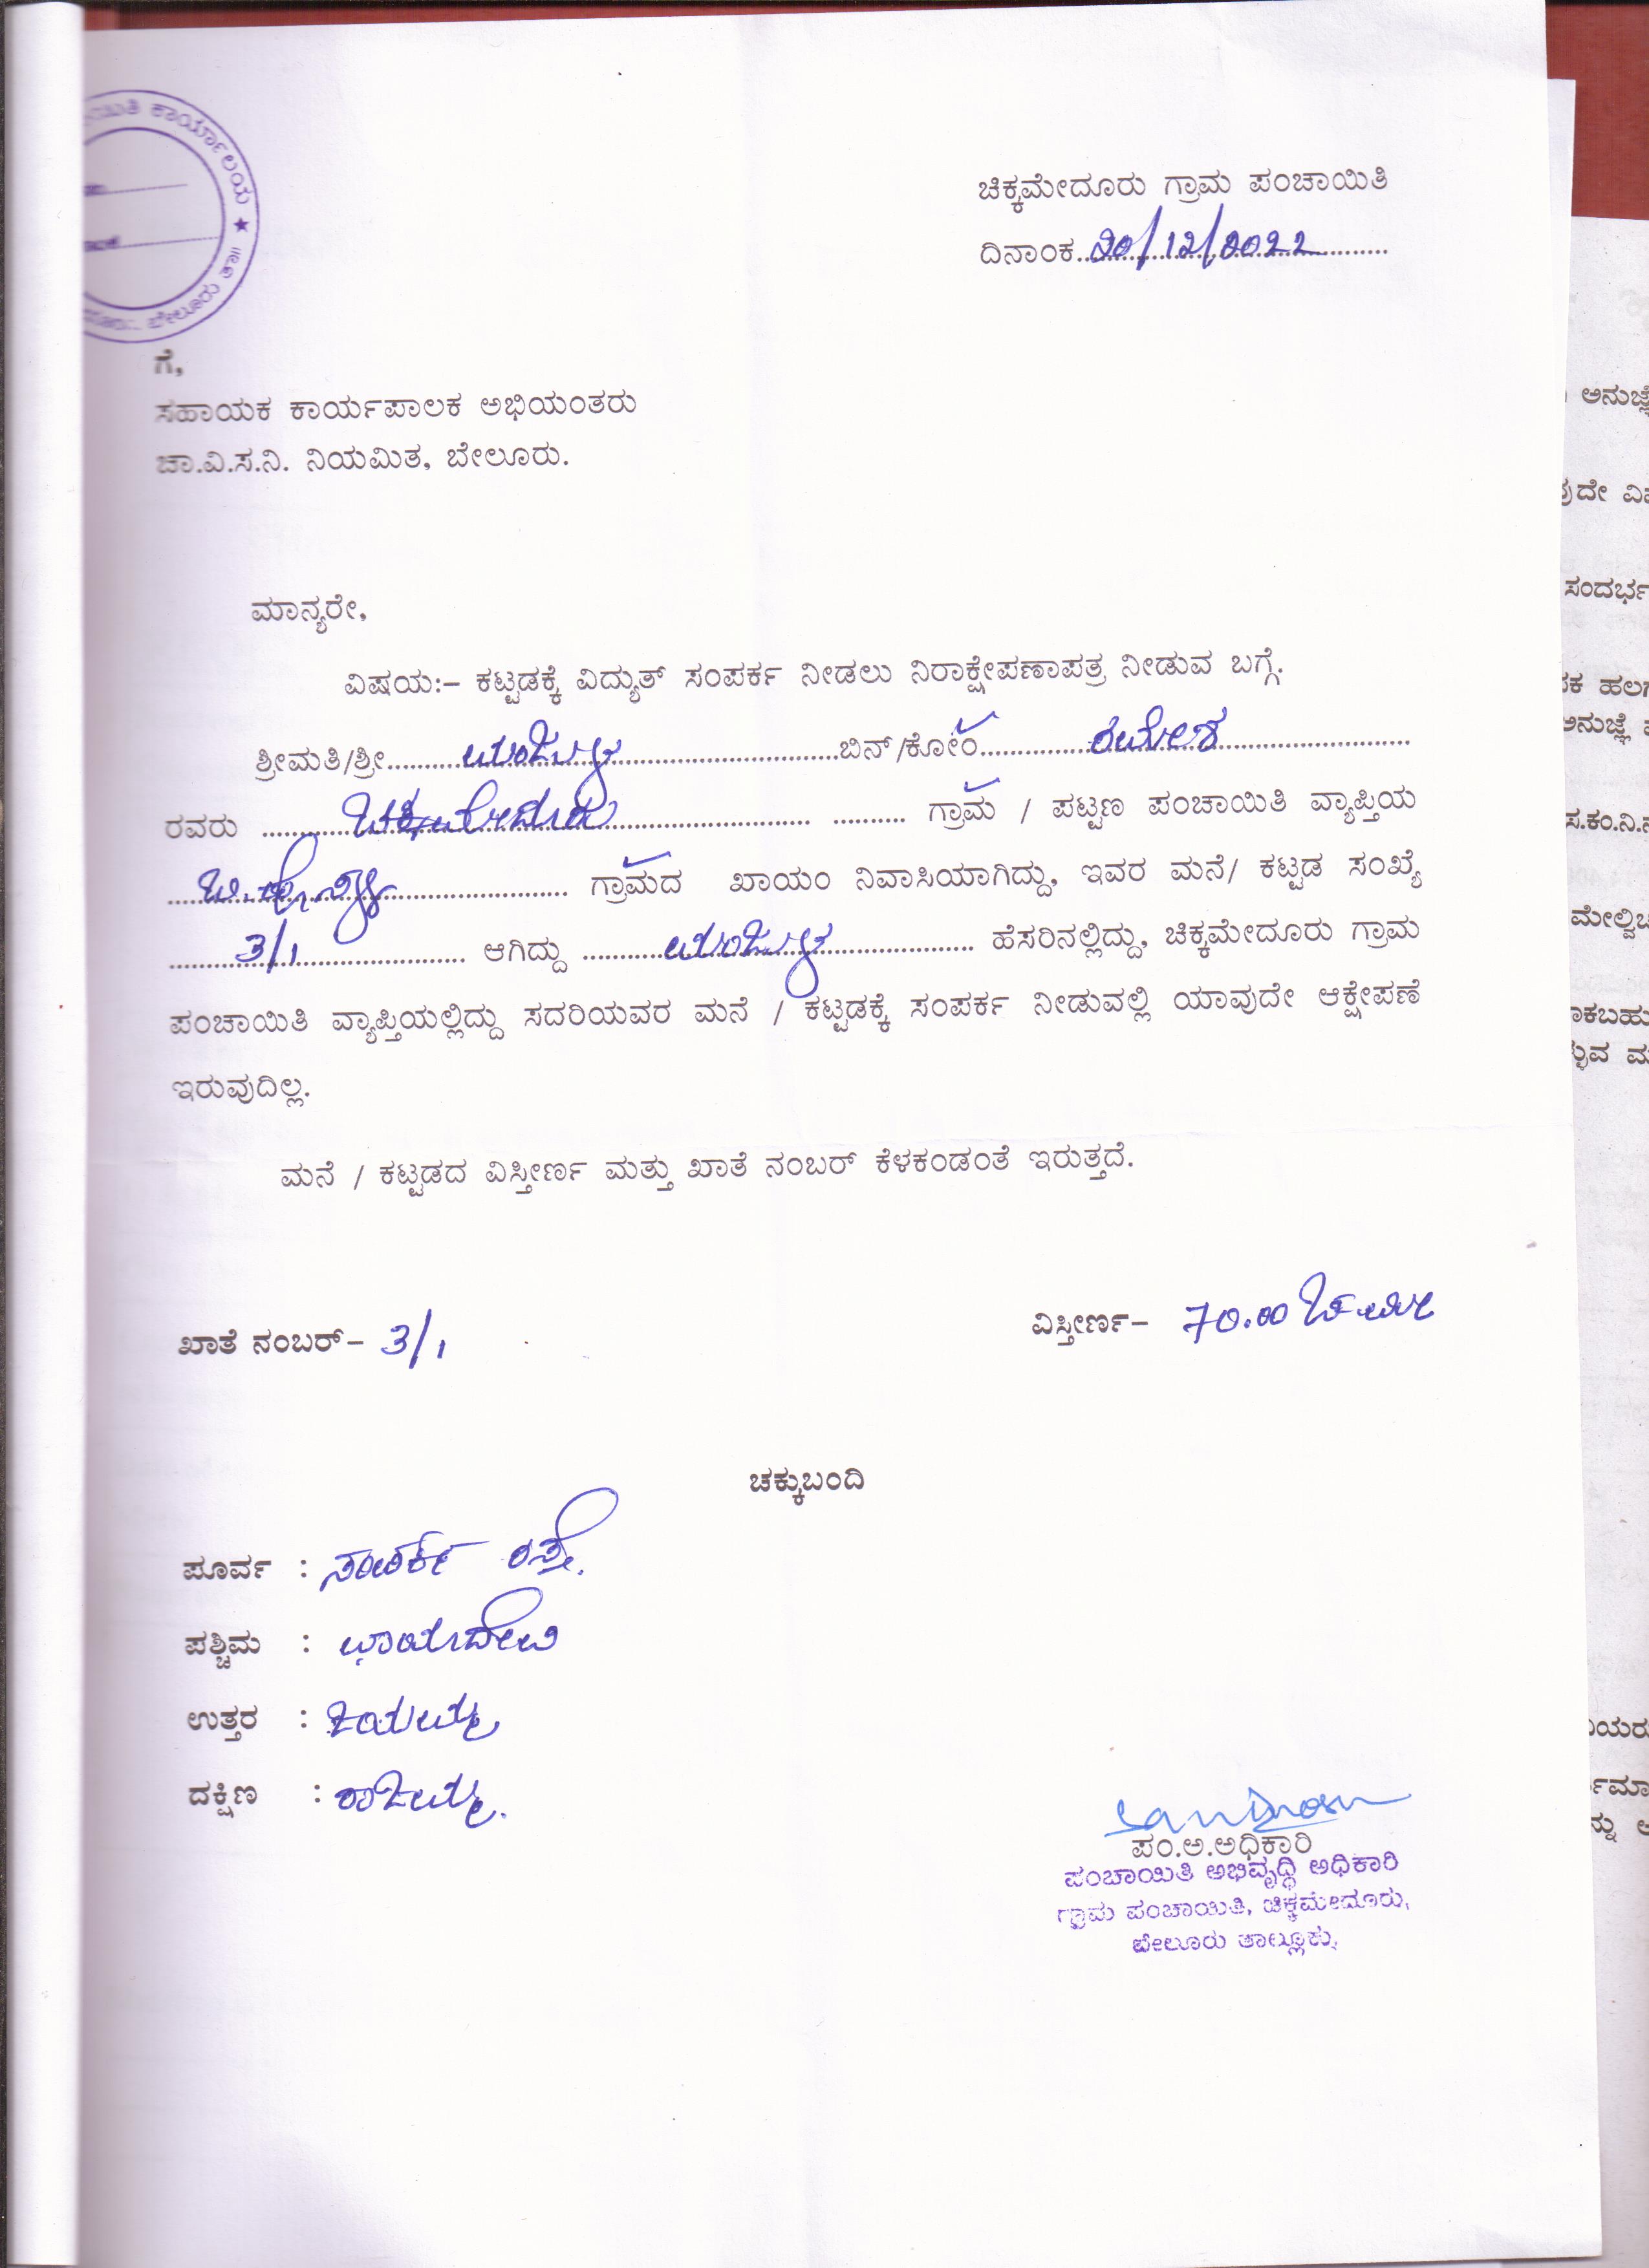 ಚಿಕ್ಕಮೇದೂರು ಗ್ರಾಮ ಪಂಚಾಯಿತಿ
ದಿನಾಂಕ 20/12/2022
ಕಾರ್ಯಾಲಯ ★ ಬೇಲೂರು ತಾ॥
ಗೆ,
ಸಹಾಯಕ ಕಾರ್ಯಪಾಲಕ ಅಭಿಯಂತರು
ಚಾ.ವಿ.ಸ.ನಿ. ನಿಯಮಿತ, ಬೇಲೂರು.
ಮಾನ್ಯರೇ,
ವಿಷಯ:– ಕಟ್ಟಡಕ್ಕೆ ವಿದ್ಯುತ್ ಸಂಪರ್ಕ ನೀಡಲು ನಿರಾಕ್ಷೇಪಣಾಪತ್ರ ನೀಡುವ ಬಗ್ಗೆ.
ಶ್ರೀಮತಿ/ಶ್ರೀ ಮಂಜುಳ ಬಿನ್/ಕೋಂ ರಮೇಶ
ರವರು ಚಿಕ್ಕಮೇದೂರು ಗ್ರಾಮ / ಪಟ್ಟಣ ಪಂಚಾಯಿತಿ ವ್ಯಾಪ್ತಿಯ
ಗ್ರಾಮದ ಖಾಯಂ ನಿವಾಸಿಯಾಗಿದ್ದು, ಇವರ ಮನೆ/ ಕಟ್ಟಡ ಸಂಖ್ಯೆ
3/1 ಆಗಿದ್ದು ಮಂಜುಳ ಹೆಸರಿನಲ್ಲಿದ್ದು, ಚಿಕ್ಕಮೇದೂರು ಗ್ರಾಮ
ಪಂಚಾಯಿತಿ ವ್ಯಾಪ್ತಿಯಲ್ಲಿದ್ದು ಸದರಿಯವರ ಮನೆ / ಕಟ್ಟಡಕ್ಕೆ ಸಂಪರ್ಕ ನೀಡುವಲ್ಲಿ ಯಾವುದೇ ಆಕ್ಷೇಪಣೆ
ಇರುವುದಿಲ್ಲ.
ಮನೆ / ಕಟ್ಟಡದ ವಿಸ್ತೀರ್ಣ ಮತ್ತು ಖಾತೆ ನಂಬರ್ ಕೆಳಕಂಡಂತೆ ಇರುತ್ತದೆ.
ಖಾತೆ ನಂಬರ್– 3/1
ವಿಸ್ತೀರ್ಣ– 70.00 ಚ.ಮೀ
ಚಕ್ಕುಬಂದಿ
ಪೂರ್ವ : ಸಂಪರ್ಕ ರಸ್ತೆ.
ಪಶ್ಚಿಮ : ಛಾಯಾದೇವಿ
ಉತ್ತರ : ಜಯಮ್ಮ
ದಕ್ಷಿಣ : ರಾಜಮ್ಮ.
ಪಂ.ಅ.ಅಧಿಕಾರಿ
ಪಂಚಾಯಿತಿ ಅಭಿವೃದ್ಧಿ ಅಧಿಕಾರಿ
ಗ್ರಾಮ ಪಂಚಾಯಿತಿ, ಚಿಕ್ಕಮೇದೂರು,
ಬೇಲೂರು ತಾಲ್ಲೂಕು,